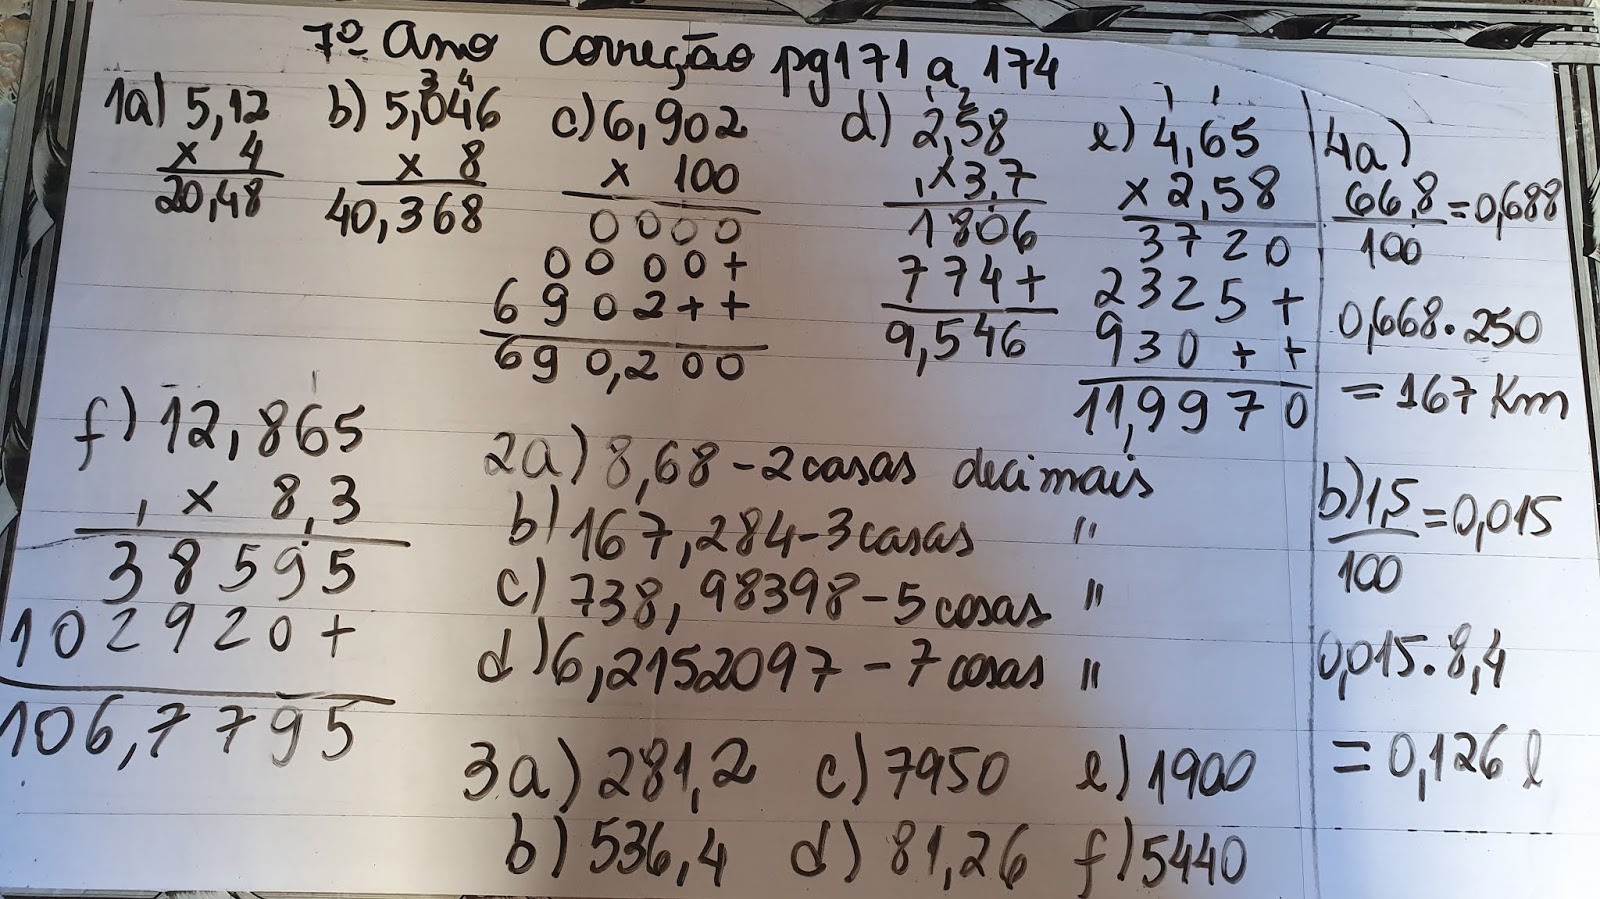 7º Ano Correção pg171 a 174
1a) 5,12
x 4
20,48
b) 5,046
3 4
x 8
40,368
c) 6,902
x 100
0000
0000+
6902++
690,200
d) 2,58
1 2
x3,7
1806
774+
9,546
e) 4,65
1 1
x 2,58
3720
2325+
930++
11,9970
f) 12,865
1
x 8,3
38595
102920+
106,7795
2a) 8,68 - 2 casas decimais
b) 167,284 - 3 casas "
c) 738,98398 - 5 casas "
d) 6,2152097 - 7 casas "
3a) 281,2 c) 7950 e) 1900
b) 536,4 d) 81,26 f) 5440
4a)
66,8/100 = 0,688
0,668.250
= 167 Km
b) 1,5/100 = 0,015
0,015.8,4
= 0,126 l